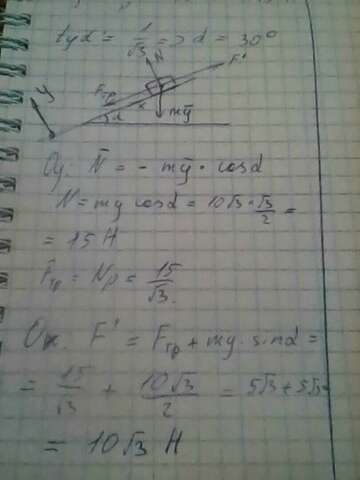 tgα = 1/√3 => α = 30°
N
F'
Fтр
y
α
x
mg
Oy: N̄ = - mḡ · cosα
N = mg cosα = 10√3 · √3/2 =
= 15 Н
Fтр = Nμ = 15/√3
Ox. F' = Fтр + mg · sinα =
= 15/√3 + 10√3/2 = 5√3 + 5√3 =
= 10√3 Н